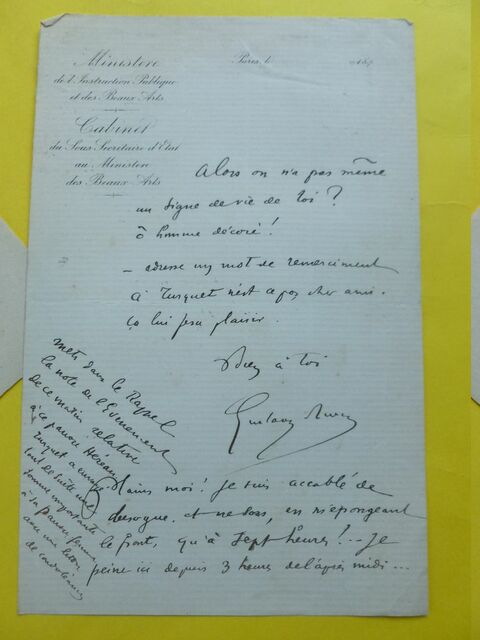 Ministère
de l'Instruction Publique
et des Beaux Arts
Cabinet
du Sous Secrétaire d'Etat
au Ministère
des Beaux Arts
Paris, le 187
Alors on n'a pas même
un signe de vie de toi ?
ô homme décoré !
– adresse un mot de remerciement
à Turquet n'est ce pas, cher ami.
ça lui fera plaisir.
Bien à toi
Gustave
Plains moi ! Je suis accablé de
besogne et ne sors, en m'épongeant
le front, qu'à sept heures !.. Je
peine ici depuis 3 heures de l'après midi...
mets dans le Rappel
la note de l'Evénement
de ce matin relative
à ce pauvre
Turquet a envoyé
tout de suite une
somme importante
à sa pauvre femme
avec une lettre
de condoléances